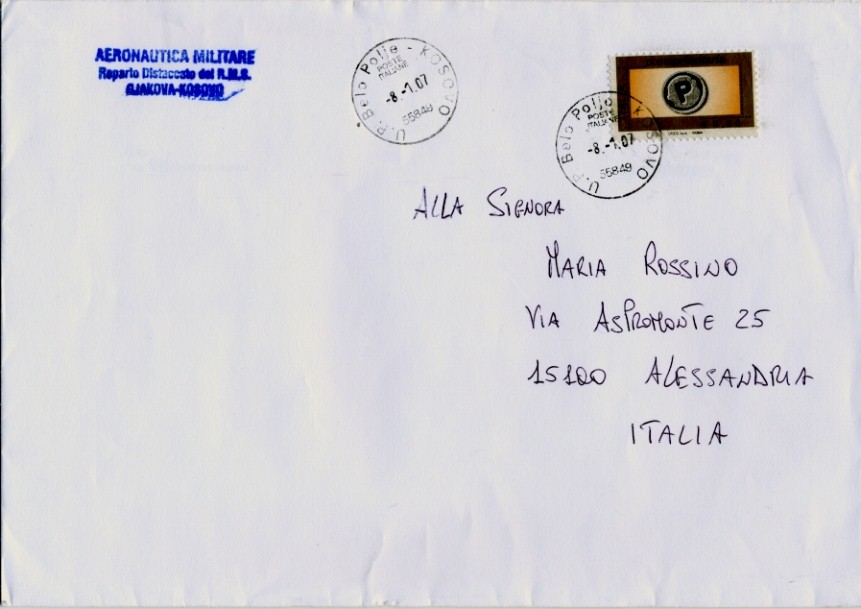 AERONAUTICA MILITARE
Reparto Distaccato del R.M.S.
GJAKOVA-KOSOVO
U.P. Belo Polje - KOSOVO
POSTE
ITALIANE
-8.-1.07
55849
P
U.P. Belo Polje - KOSOVO
POSTE
ITALIANE
-8.-1.07
55849
ALLA SIGNORA
MARIA ROSSINO
VIA ASPROMONTE 25
15100 ALESSANDRIA
ITALIA